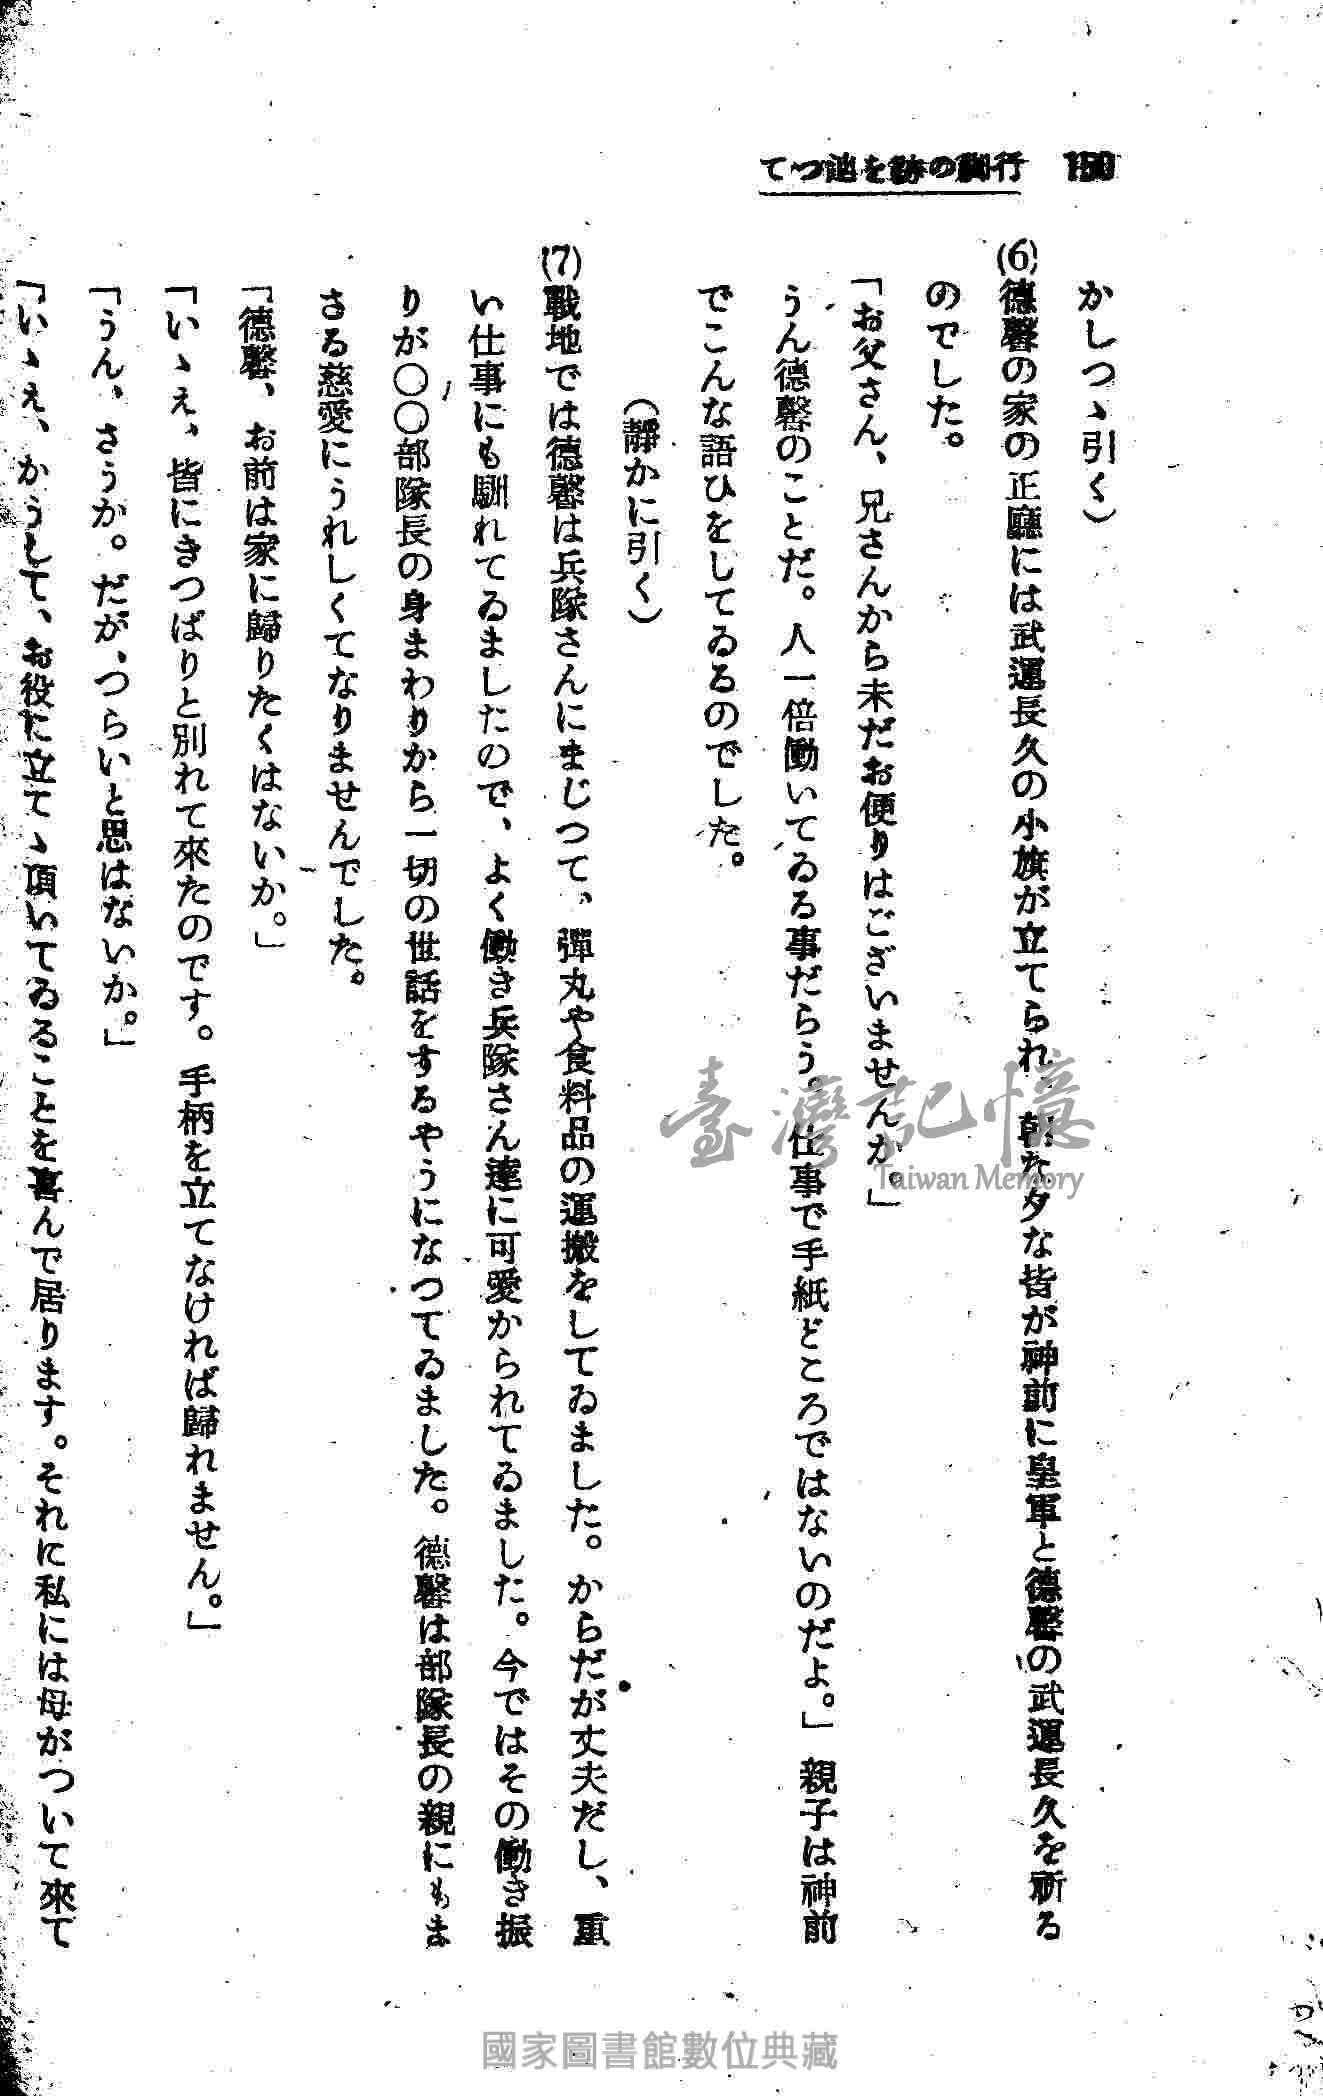 150 行脚の跡を辿つて
かしつゝ引く）
(6)德馨の家の正廳には武運長久の小旗が立てられ、朝な夕な皆が神前に皇軍と德馨の武運長久を祈る
のでした。
「お父さん、兄さんから未だお便りはございませんか。」
うん德馨のことだ。人一倍働いてゐる事だらう。仕事で手紙どころではないのだよ。」親子は神前
でこんな語ひをしてゐるのでした。
（靜かに引く）
(7)戰地では德馨は兵隊さんにまじつて、彈丸や食料品の運搬をしてゐました。からだが丈夫だし、重
い仕事にも馴れてゐましたので、よく働き兵隊さん達に可愛がられてゐました。今ではその働き振
りが〇〇部隊長の身まわりから一切の世話をするやうになつてゐました。德馨は部隊長の親にもま
さる慈愛にうれしくてなりませんでした。
「德馨、お前は家に歸りたくはないか。」
「いゝえ、皆にきつぱりと別れて來たのです。手柄を立てなければ歸れません。」
「うん、さうか。だが、つらいと思はないか。」
「いゝえ、かうして、お役に立てゝ頂いてゐることを喜んで居ります。それに私には母がついて來て
臺灣記憶
Taiwan Memory
國家圖書館數位典藏